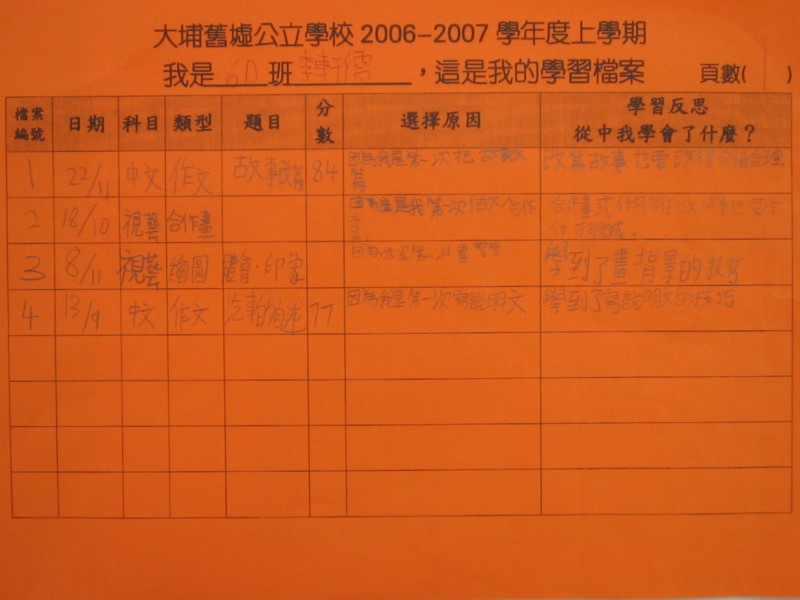 大埔舊墟公立學校 2006-2007 學年度上學期
我是 6D 班 軒儒 ,這是我的學習檔案 頁數( 1 )
檔案編號 日期 科目 類型 題目 分數 選擇原因 學習反思 從中我學會了什麼?
1 22/11 中文 作文 故事改寫 84 因為我是第一次把故事改 改寫故事也要改得合情合理
2 18/10 視藝 合作畫 我第一次 合作 合作畫
3 8/11 視藝 繪圖 印象 學到了畫背景的技巧
4 13/9 中文 作文 汽車的自述 77 因為我是第一次寫說明文 學到了寫說明文的技巧